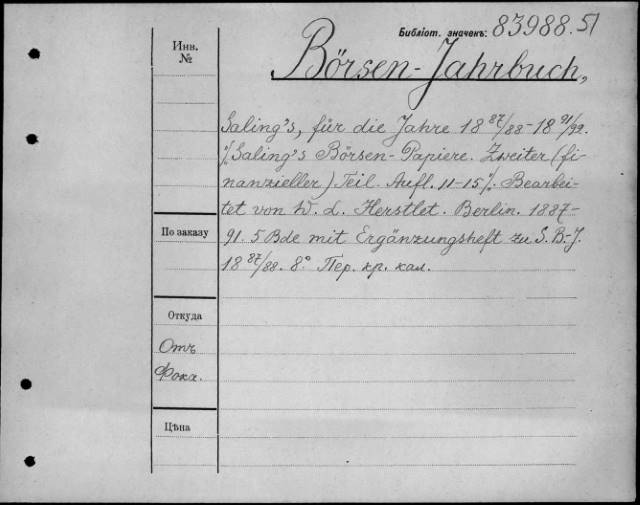 Библіот. значекъ: 83988.51
Инв.
№
Börsen-Jahrbuch,
Saling's, für die Jahre 18 87/88-18 91/92.
%Saling's Börsen-Papiere. Zweiter (fi-
nanzieller) Teil. Aufl. 11-15%. Bearbei-
tet von W. L. Herstlet. Berlin. 1887-
По заказу
91. 5 Bde mit Ergänzungsheft zu S. B.-J.
18 87/88. 8° Пер. кр. кал.
Откуда
Отъ
Фока.
Цѣна